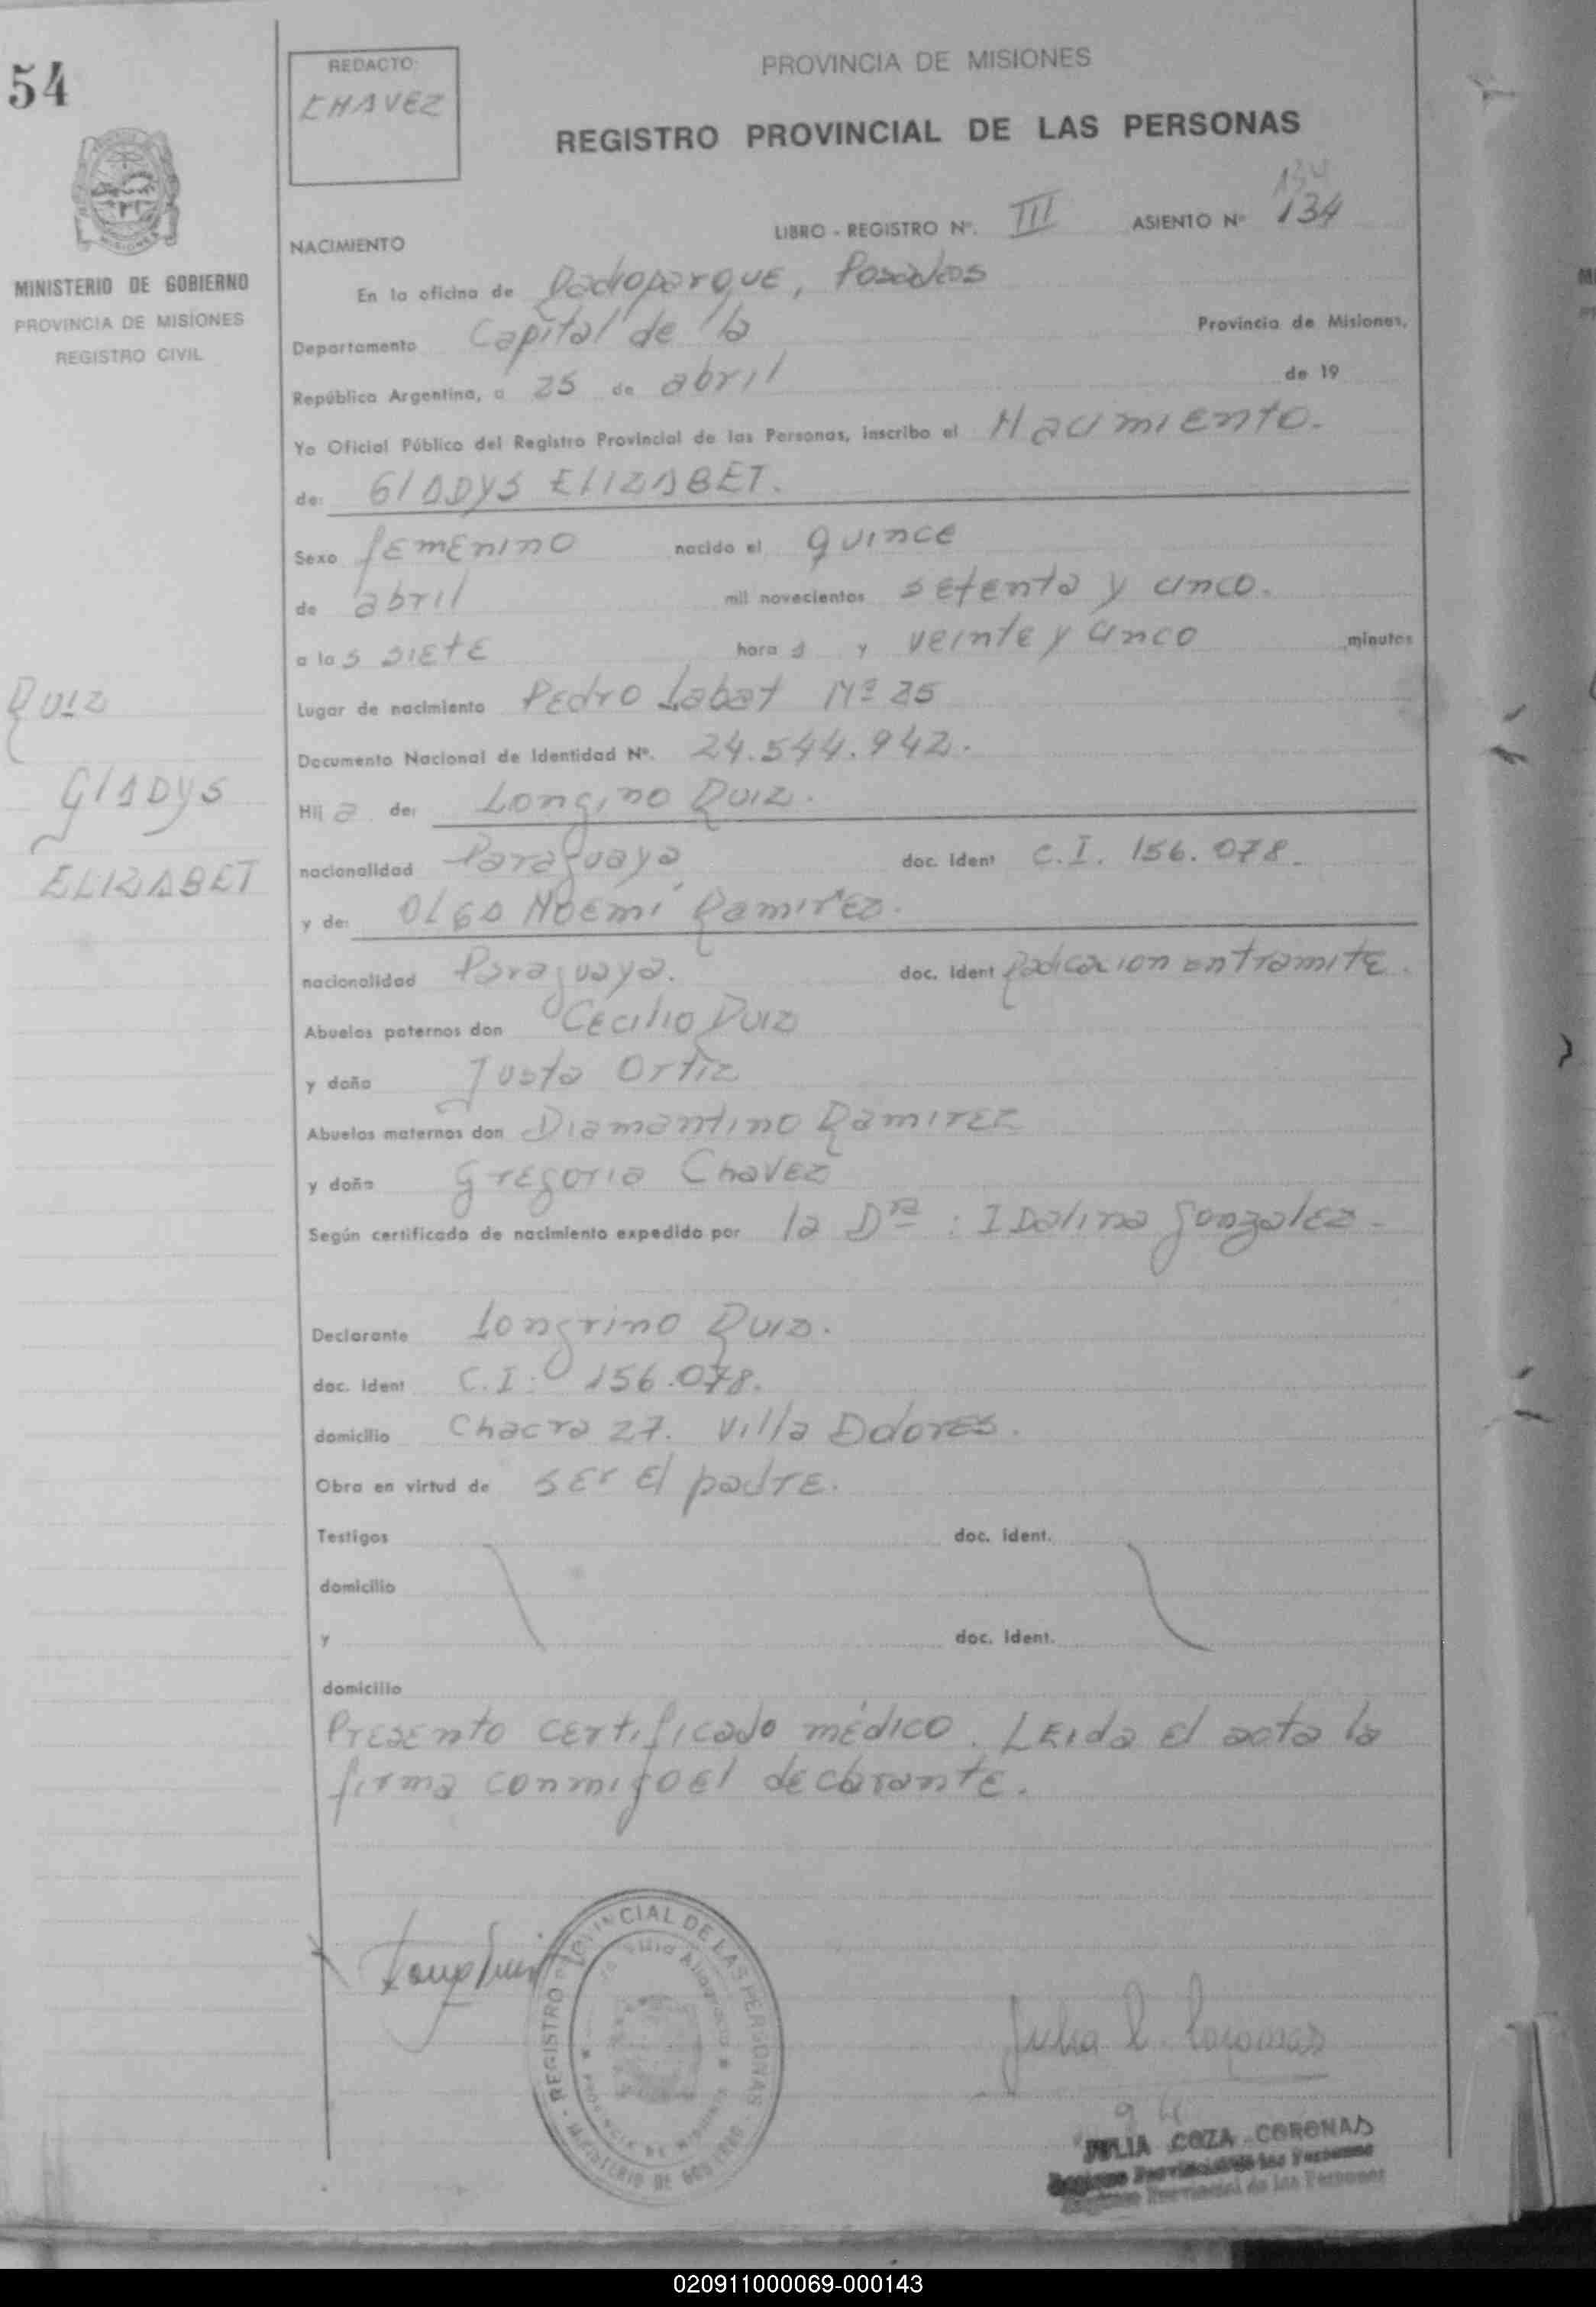 54
REDACTO:
CHAVEZ
PROVINCIA DE MISIONES
REGISTRO PROVINCIAL DE LAS PERSONAS
MINISTERIO DE GOBIERNO
PROVINCIA DE MISIONES
REGISTRO CIVIL
134
NACIMIENTO LIBRO - REGISTRO Nº. III ASIENTO Nº 134
En la oficina de Rocoparque, Posadas
Departamento Capital de la Provincia de Misiones,
República Argentina, a 25 de abril de 19
Yo Oficial Público del Registro Provincial de las Personas, inscribo el Nacimiento.
de: GLADYS ELIZABET.
Sexo femenino nacido el quince
de abril mil novecientos setenta y cinco.
a las siete horas y veinte y cinco minutos
Lugar de nacimiento Pedro Labat Nº 25
Documento Nacional de Identidad Nº. 24.544.942.
Hija de: Longino Ruiz.
nacionalidad Paraguaya doc. Ident C.I. 156.078.
y de: Olga Noemí Ramirez.
nacionalidad Paraguaya. doc. Ident Radicacion en tramite.
Abuelos paternos don Cecilio Ruiz
y doña Justa Ortiz
Abuelos maternos don Diamantino Ramirez
y doña Gregoria Chavez
Según certificado de nacimiento expedido por la Dra : Idalina Gonzalez -
Declarante Longrino Ruiz.
doc. Ident C.I: 156.078.
domicilio Chacra 27. Villa Dolores.
Obra en virtud de ser el padre.
Testigos doc. ident.
domicilio
y doc. Ident.
domicilio
Presento certificado médico. Leida el acta la
firma conmigo el declarante.
Ruiz
GLADYS
ELIZABET
REGISTRO PROVINCIAL DE LAS PERSONAS
MINISTERIO DE GOBIERNO
Julia C. Coronas
JULIA COZA CORONAS
Registro Provincial de las Personas
020911000069-000143